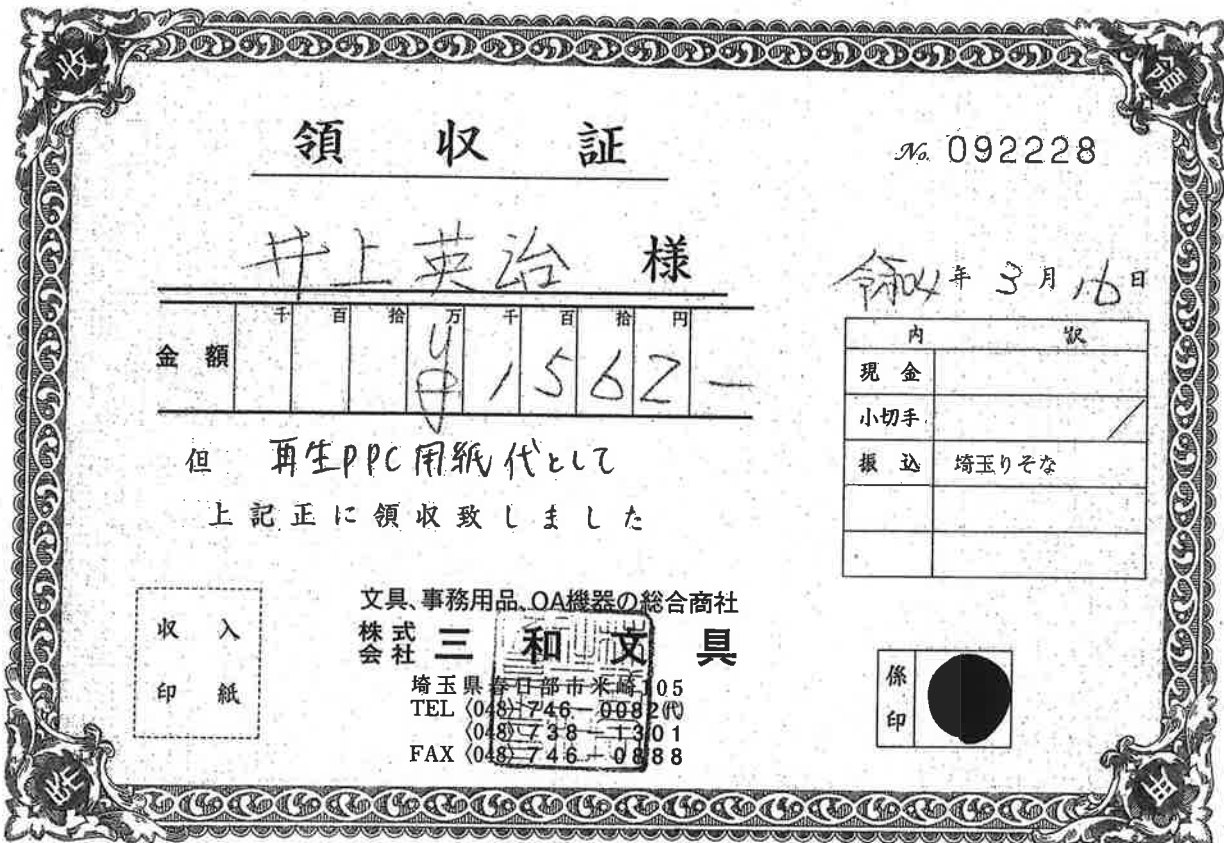 収 領
領 収 証
No. 092228
井上英治 様
令和4年 3月 16日
千 百 拾 万 千 百 拾 円
金額 ¥1562-
但 再生PPC用紙代として
上記正に領収致しました
内 訳
現金
小切手
振込 埼玉りそな
収入
印紙
文具、事務用品、OA機器の総合商社
株式会社 三和文具
埼玉県春日部市米崎105
TEL (048) 746-0082(代)
(048) 738-1301
FAX (048) 746-0888
係印
証